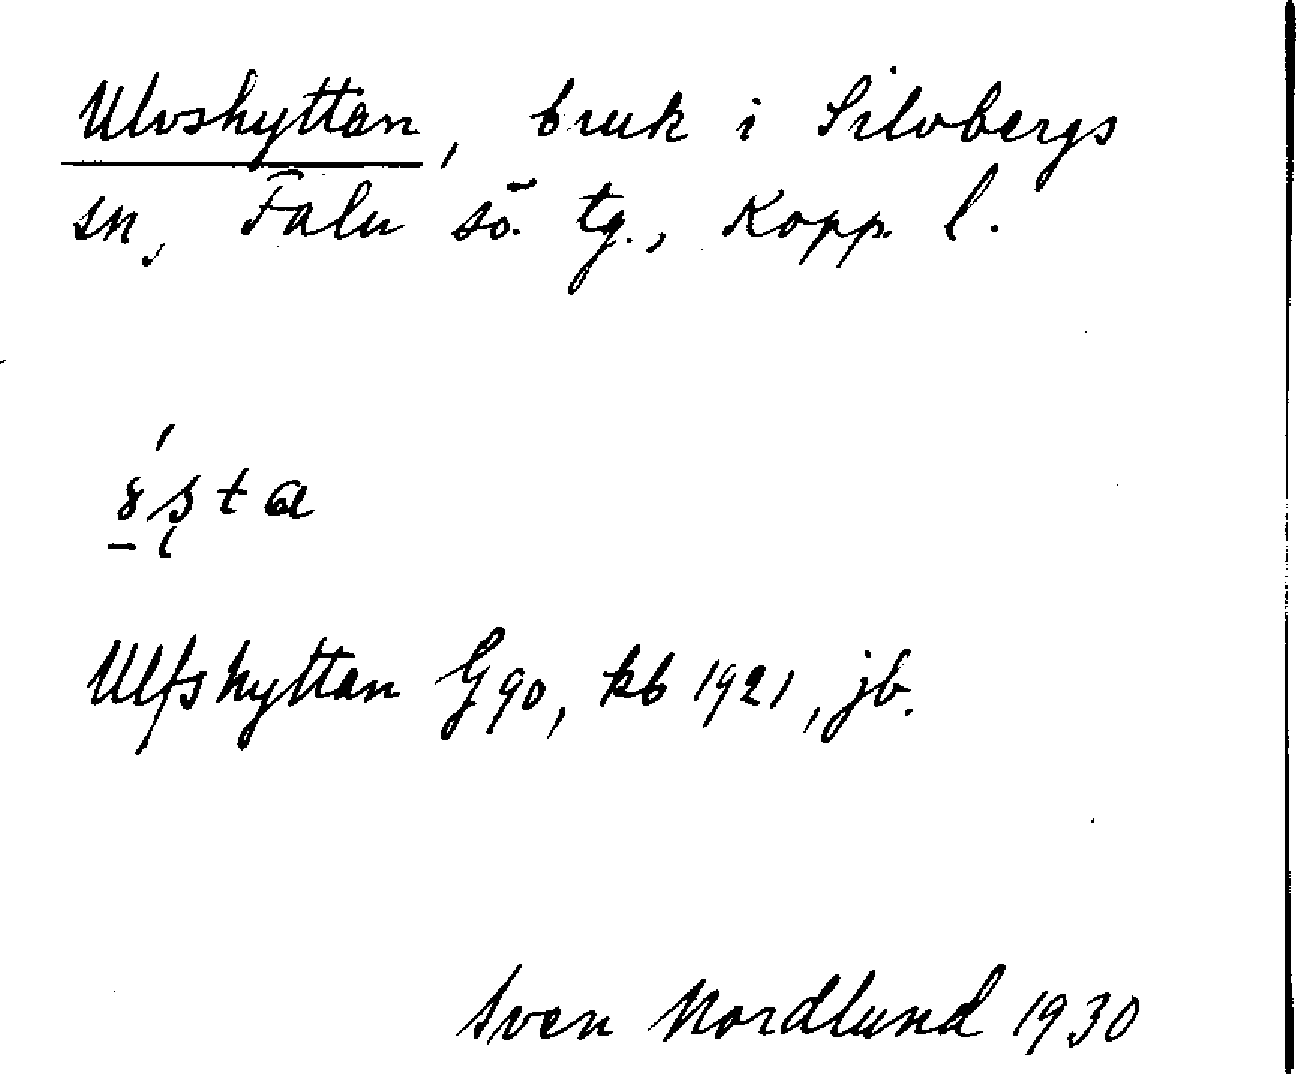 Ulvshyttan, bruk i Silvbergs
sn, Falu sö. tg., Kopp. l.
Ulfshyttan G 90, kb 1921, jb.
Sven Nordlund 1930